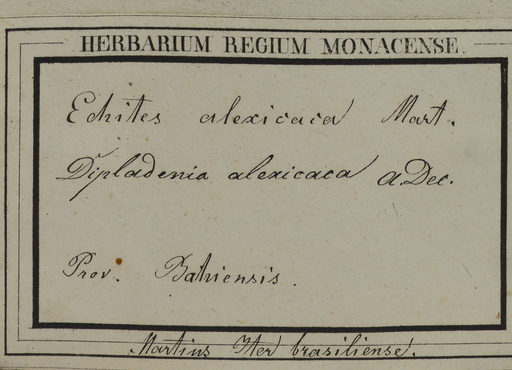 HERBARIUM REGIUM MONACENSE.
Echites alexicaca Mart.
Dipladenia alexicaca A.Dec.
Prov. Bahiensis.
Martius Iter brasiliense.